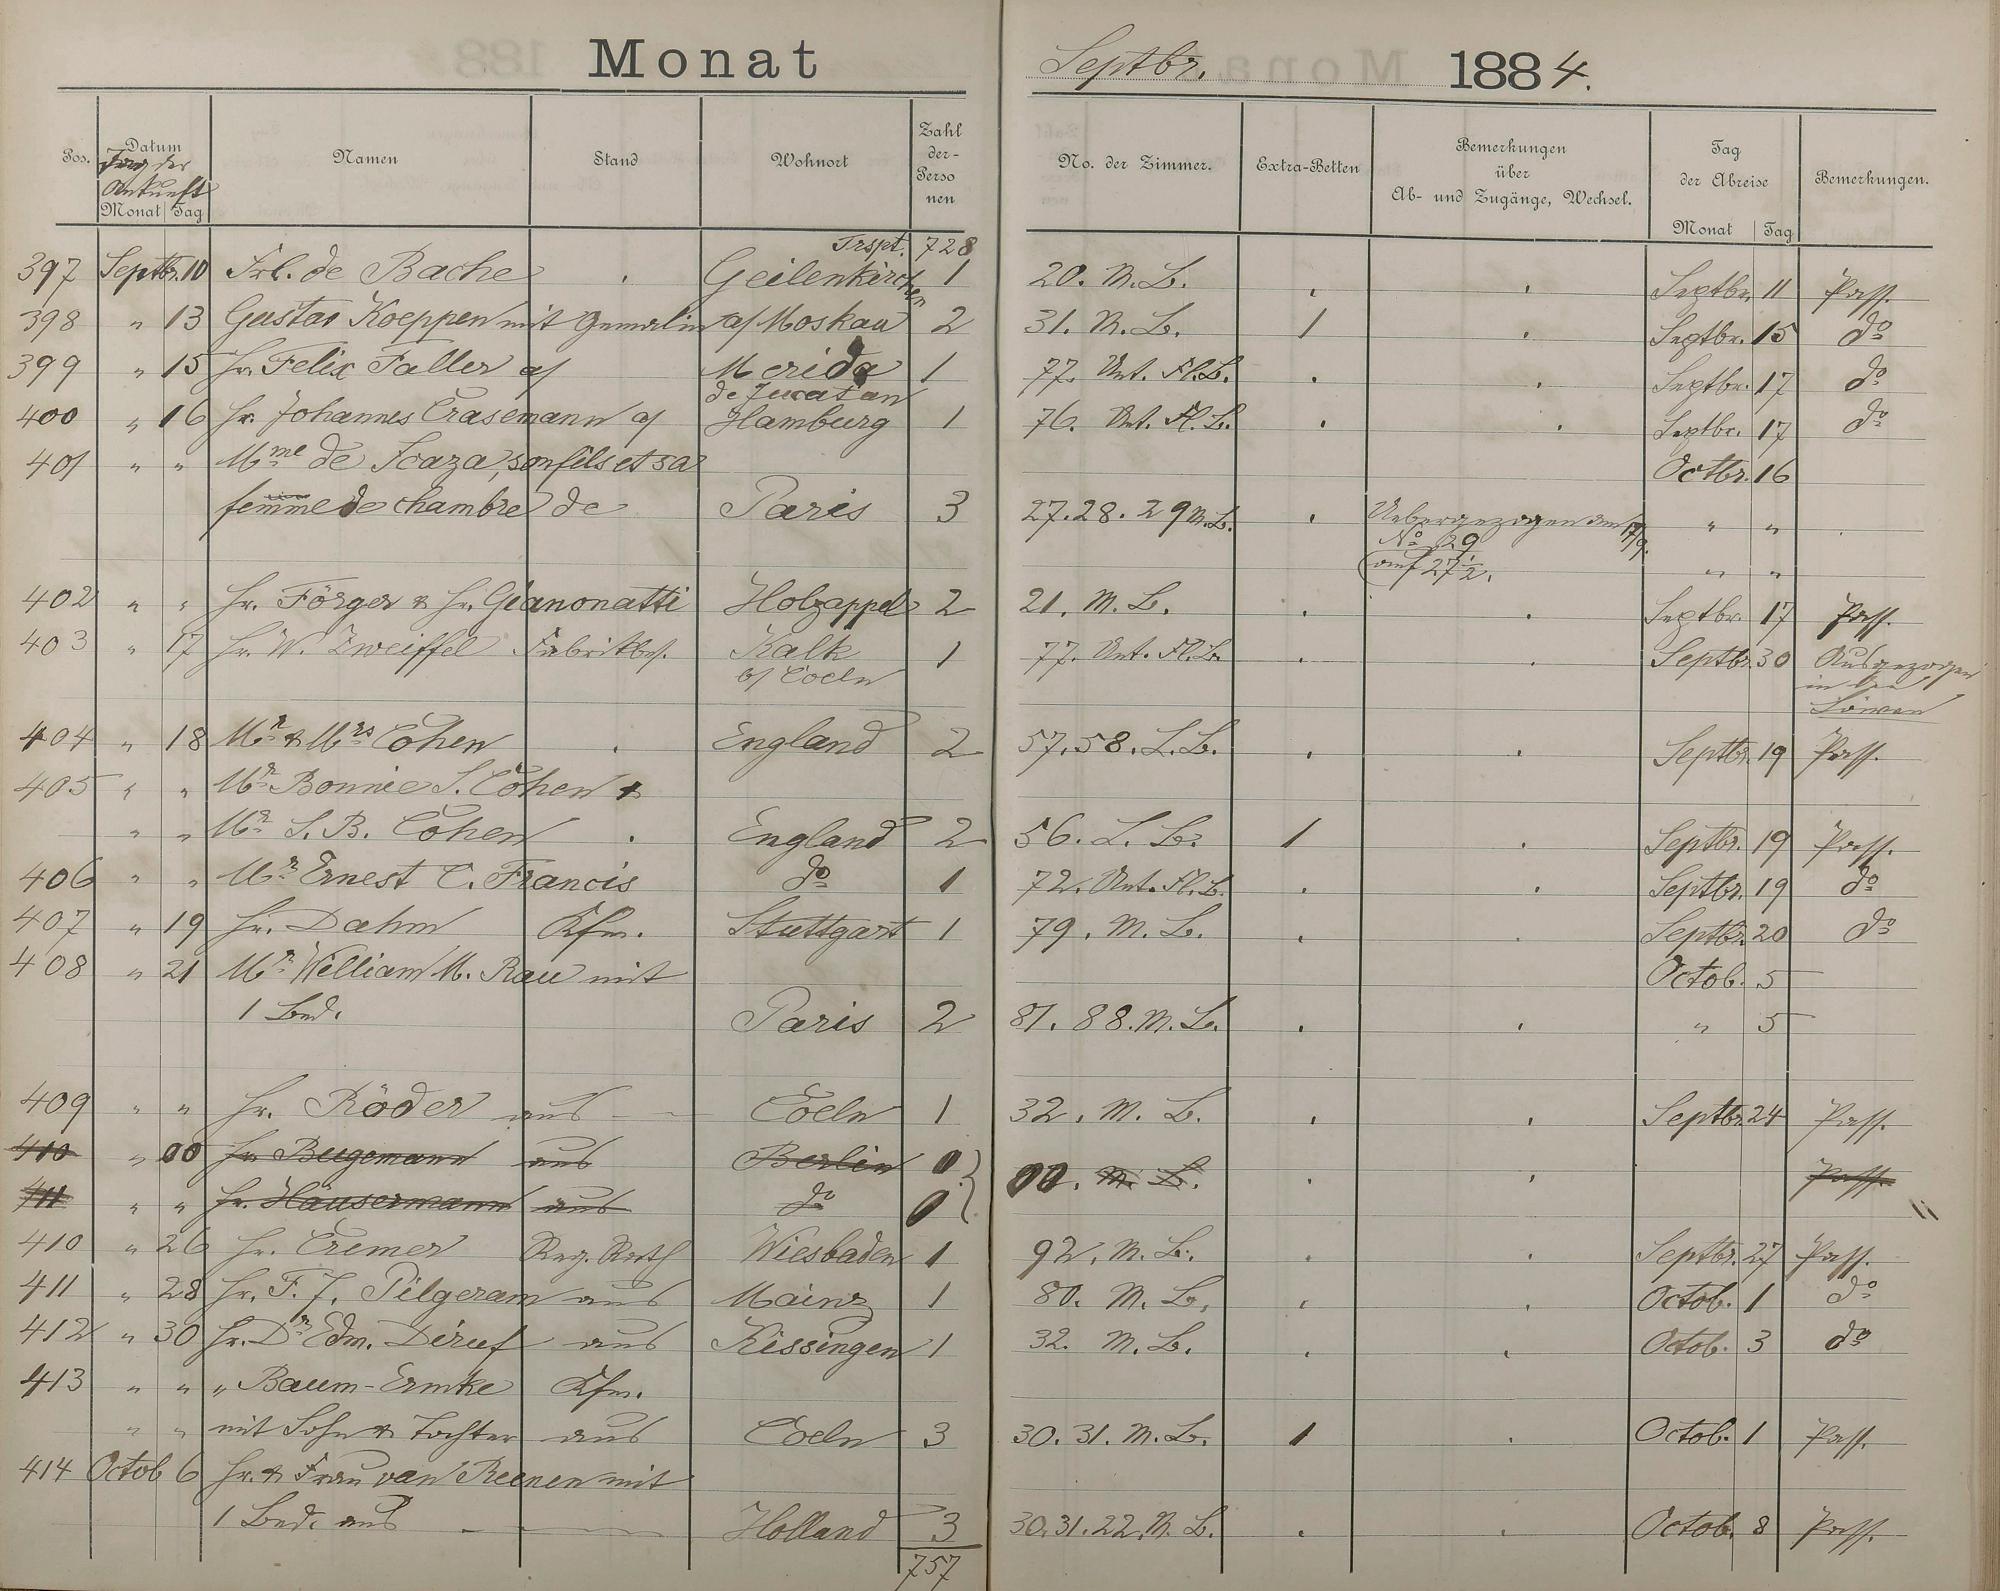 Monat Septbr. 1884.
Pos. Datum Tag der Ankunft Monat Tag Namen Stand Wohnort Zahl der Personen No. der Zimmer. Extra-Betten Bemerkungen über Ab- und Zugänge, Wechsel. Tag der Abreise Monat Tag Bemerkungen.
Trspt. 728
397 Septbr. 10 Frl. de Bache . Geilenkirchen 1 20. M. B. . . Septbr. 11 Pass.
398 " 13 Gustav Koeppen mit Gemalin a/ Moskau 2 31. M. B. 1 . Septbr. 15 do
399 " 15 Hr. Felix Faller a/ Merida 1 77. Unt. Fl. B. . . Septbr. 17 do
de Jucatan
400 " 16 Hr. Johannes Crasemann a/ Hamburg 1 76. Unt. Fl. B. . . Septbr. 17 do
401 " " Mme de Soaza, son fils et sa Octbr. 16
femme de chambre de Paris 3 27. 28. 29 M. B. . Uebergezogen am 17/9. " "
No 29
auf 27 1/2. " "
402 " " Hr. Förger & Hr. Gianonatti Holzappel 2 21. M. B. . . Septbr. 17 Pass.
403 " 17 Hr. W. Zweiffel Fabrikbes. Kalk 1 77. Unt. Fl. B. . . Septbr. 30 Ausgezogen
b/ Coeln in den
Löwen
404 " 18 Mr & Mrs Cohen . England 2 57. 58. L. B. . . Septbr. 19 Pass.
405 " " Mr Bonnie S. Cohen &
" " Mr S. B. Cohen . England 2 56. L. B. 1 . Septbr. 19 Pass.
406 " " Mr Ernest C. Francis do 1 72. Unt. Fl. B. . . Septbr. 19 do
407 " 19 Hr. Dahm Kfm. Stuttgart 1 79. M. B. . . Septbr. 20 do
408 " 21 Mr William M. Rau mit Octob. 5
1 Bed. Paris 2 81. 88. M. B. . . " 5
409 " " Hr. Röder aus Coeln 1 32. M. B. . . Septbr. 24 Pass.
410 " 00 Hr. Bugemann aus Berlin 0 00. M. B. . . Pass.
411 " " Hr. Häusermann aus do 0
410 " 26 Hr. Cremer Reg. Rath Wiesbaden 1 92. M. B. . . Septbr. 27 Pass.
411 " 28 Hr. F. J. Pilgeram aus Mainz 1 80. M. B. . . Octob. 1 do
412 " 30 Hr. Dr Edm. Diruf aus Kissingen 1 32. M. B. . . Octob. 3 do
413 " " " Baum-Ermke Kfm.
" " mit Sohn & Tochter aus Coeln 3 30. 31. M. B. 1 . Octob. 1 Pass.
414 Octob 6 Hr. & Frau van Reenen mit
1 Bed. aus Holland 3 30. 31. 22. M. B. . . Octob. 8 Pass.
757